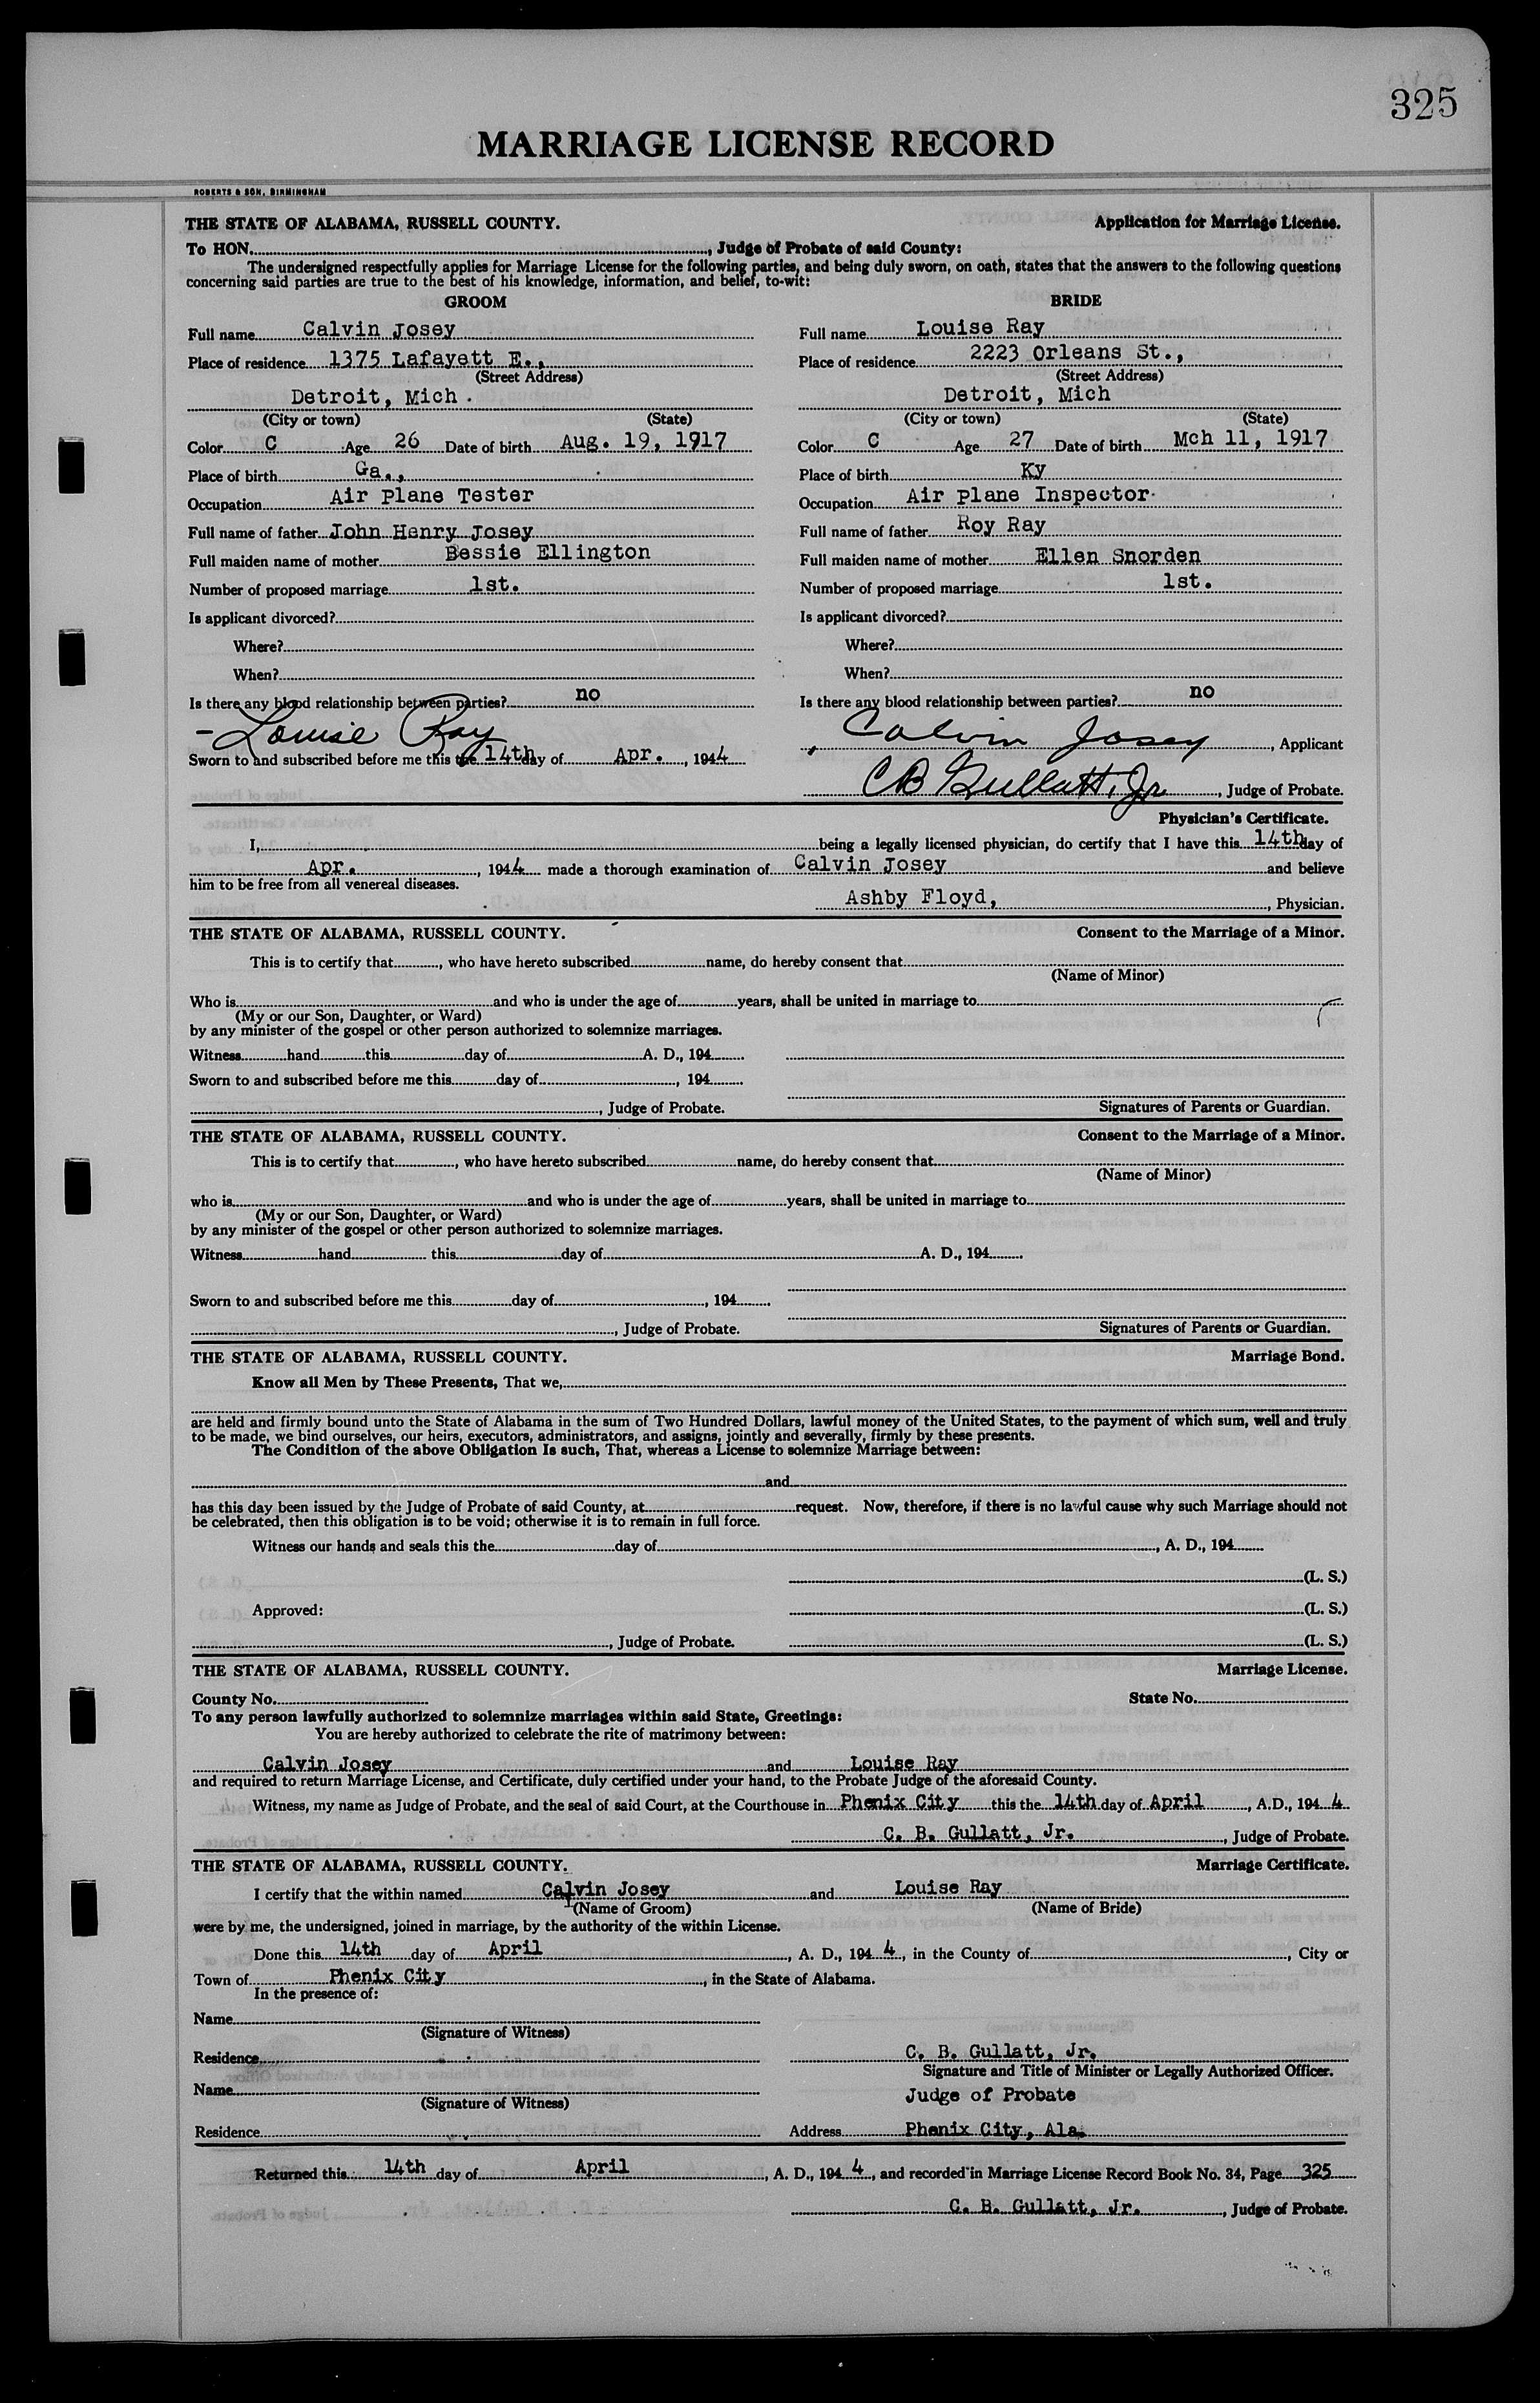 325
MARRIAGE LICENSE RECORD
ROBERTS & SON, BIRMINGHAM
THE STATE OF ALABAMA, RUSSELL COUNTY. Application for Marriage License.
To HON. , Judge of Probate of said County:
The undersigned respectfully applies for Marriage License for the following parties, and being duly sworn, on oath, states that the answers to the following questions
concerning said parties are true to the best of his knowledge, information, and belief, to-wit:
GROOM BRIDE
Full name Calvin Josey Full name Louise Ray
Place of residence 1375 Lafayett E., Place of residence 2223 Orleans St.,
(Street Address) (Street Address)
Detroit, Mich. Detroit, Mich
(City or town) (State) (City or town) (State)
Color C Age 26 Date of birth Aug. 19, 1917 Color C Age 27 Date of birth Mch 11, 1917
Place of birth Ga., Place of birth Ky
Occupation Air Plane Tester Occupation Air plane Inspector
Full name of father John Henry Josey Full name of father Roy Ray
Full maiden name of mother Bessie Ellington Full maiden name of mother Ellen Snorden
Number of proposed marriage 1st. Number of proposed marriage 1st.
Is applicant divorced? Is applicant divorced?
Where? Where?
When? When?
Is there any blood relationship between parties? no Is there any blood relationship between parties? no
Louise Ray Calvin Josey , Applicant
Sworn to and subscribed before me this the 14th day of Apr. , 1944
CB Gullatt, Jr , Judge of Probate.
Physician's Certificate.
I, being a legally licensed physician, do certify that I have this 14th day of
Apr. , 1944 made a thorough examination of Calvin Josey and believe
him to be free from all venereal diseases.
Ashby Floyd, , Physician.
THE STATE OF ALABAMA, RUSSELL COUNTY. Consent to the Marriage of a Minor.
This is to certify that , who have hereto subscribed name, do hereby consent that
(Name of Minor)
Who is and who is under the age of years, shall be united in marriage to
(My or our Son, Daughter, or Ward)
by any minister of the gospel or other person authorized to solemnize marriages.
Witness hand this day of A. D., 194
Sworn to and subscribed before me this day of , 194
, Judge of Probate. Signatures of Parents or Guardian.
THE STATE OF ALABAMA, RUSSELL COUNTY. Consent to the Marriage of a Minor.
This is to certify that , who have hereto subscribed name, do hereby consent that
(Name of Minor)
who is and who is under the age of years, shall be united in marriage to
(My or our Son, Daughter, or Ward)
by any minister of the gospel or other person authorized to solemnize marriages.
Witness hand this day of A. D., 194
Sworn to and subscribed before me this day of , 194
, Judge of Probate. Signatures of Parents or Guardian.
THE STATE OF ALABAMA, RUSSELL COUNTY. Marriage Bond.
Know all Men by These Presents, That we,
are held and firmly bound unto the State of Alabama in the sum of Two Hundred Dollars, lawful money of the United States, to the payment of which sum, well and truly
to be made, we bind ourselves, our heirs, executors, administrators, and assigns, jointly and severally, firmly by these presents.
The Condition of the above Obligation Is such, That, whereas a License to solemnize Marriage between:
and
has this day been issued by the Judge of Probate of said County, at request. Now, therefore, if there is no lawful cause why such Marriage should not
be celebrated, then this obligation is to be void; otherwise it is to remain in full force.
Witness our hands and seals this the day of , A. D., 194
(L. S.)
Approved: (L. S.)
, Judge of Probate. (L. S.)
THE STATE OF ALABAMA, RUSSELL COUNTY. Marriage License.
County No. State No.
To any person lawfully authorized to solemnize marriages within said State, Greetings:
You are hereby authorized to celebrate the rite of matrimony between:
Calvin Josey and Louise Ray
and required to return Marriage License, and Certificate, duly certified under your hand, to the Probate Judge of the aforesaid County.
Witness, my name as Judge of Probate, and the seal of said Court, at the Courthouse in Phenix City this the 14th day of April , A.D., 194 4
C. B. Gullatt, Jr. , Judge of Probate.
THE STATE OF ALABAMA, RUSSELL COUNTY. Marriage Certificate.
I certify that the within named Calvin Josey and Louise Ray
(Name of Groom) (Name of Bride)
were by me, the undersigned, joined in marriage, by the authority of the within License.
Done this 14th day of April , A. D., 194 4 , in the County of , City or
Town of Phenix City , in the State of Alabama.
In the presence of:
Name
(Signature of Witness)
Residence C. B. Gullatt, Jr.
Signature and Title of Minister or Legally Authorized Officer.
Name Judge of Probate
(Signature of Witness)
Residence Address Phenix City, Ala.
Returned this 14th day of April , A. D., 194 4 , and recorded in Marriage License Record Book No. 34, Page 325
C. B. Gullatt, Jr. , Judge of Probate.